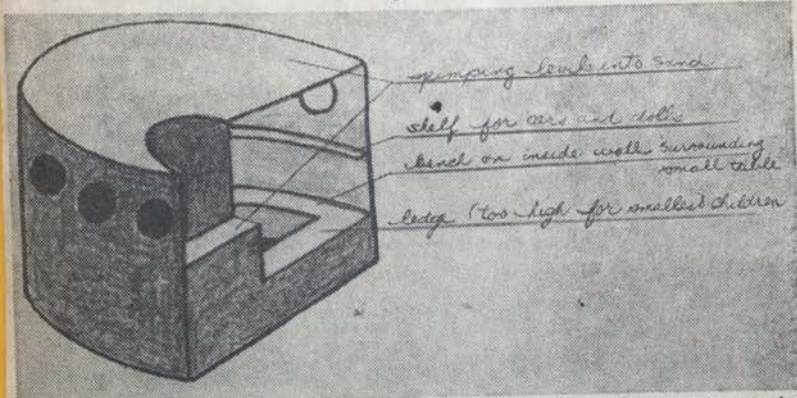 jumping levels into sand
shelf for cars and dolls
bench on inside walls surrounding
small table
ledge (too high for smallest children